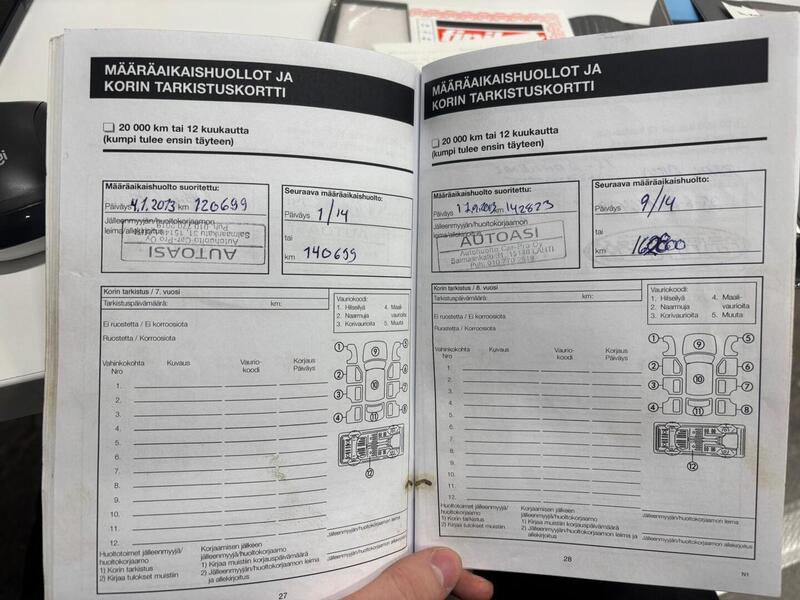 MÄÄRÄAIKAISHUOLLOT JA
KORIN TARKISTUSKORTTI
20 000 km tai 12 kuukautta
(kumpi tulee ensin täyteen)
Määräaikaishuolto suoritettu:
Päiväys 4.1.2013 km 120699
Jälleenmyyjän/huoltokorjaamon
leima/allekirjoitus
AUTOASI
Autohuolto Car-Pro Oy
Saimaankatu 31, 15140 LAHTI
Puh. 010 770 2819
Seuraava määräaikaishuolto:
Päiväys 1/14
tai
km 140699
Korin tarkistus / 7. vuosi
Tarkistuspäivämäärä: km:
Ei ruostetta / Ei korroosiota
Ruostetta / Korroosiota
Vauriokoodi:
1. Hilseilyä 4. Maali-
2. Naarmuja vaurioita
3. Korivaurioita 5. Muuta
Vahinkokohta Kuvaus Vaurio- Korjaus
Nro koodi Päiväys
1.
2.
3.
4.
5.
6.
7.
8.
9.
10.
11.
12.
1 2 3 4 5 6 7 8 9 10 11 12
Huoltotoimet jälleenmyyjä/
huoltokorjaamo
1) Korin tarkistus
2) Kirjaa tulokset muistiin
Korjaamisen jälkeen
jälleenmyyjä/huoltokorjaamo
1) Kirjaa muistiin korjauspäivämäärä
2) Jälleenmyyjän/huoltokorjaamon leima
ja allekirjoitus
Jälleenmyyjän/huoltokorjaamon leima
Jälleenmyyjän/huoltokorjaamon allekirjoitus
27
MÄÄRÄAIKAISHUOLLOT JA
KORIN TARKISTUSKORTTI
20 000 km tai 12 kuukautta
(kumpi tulee ensin täyteen)
Määräaikaishuolto suoritettu:
Päiväys km 142823
Jälleenmyyjän/huoltokorjaamon
leima/allekirjoitus
AUTOASI
Autohuolto Car-Pro Oy
Saimaankatu 31, 15140 LAHTI
Puh. 010 770 2819
Seuraava määräaikaishuolto:
Päiväys 9/14
tai
km
Korin tarkistus / 8. vuosi
Tarkistuspäivämäärä: km:
Ei ruostetta / Ei korroosiota
Ruostetta / Korroosiota
Vauriokoodi:
1. Hilseilyä 4. Maali-
2. Naarmuja vaurioita
3. Korivaurioita 5. Muuta
Vahinkokohta Kuvaus Vaurio- Korjaus
Nro koodi Päiväys
1.
2.
3.
4.
5.
6.
7.
8.
9.
10.
11.
12.
1 2 3 4 5 6 7 8 9 10 11 12
Huoltotoimet jälleenmyyjä/
huoltokorjaamo
1) Korin tarkistus
2) Kirjaa tulokset muistiin
Korjaamisen jälkeen
jälleenmyyjä/huoltokorjaamo
1) Kirjaa muistiin korjauspäivämäärä
2) Jälleenmyyjän/huoltokorjaamon leima ja
allekirjoitus
Jälleenmyyjän/huoltokorjaamon leima
Jälleenmyyjän/huoltokorjaamon allekirjoitus
28
N1